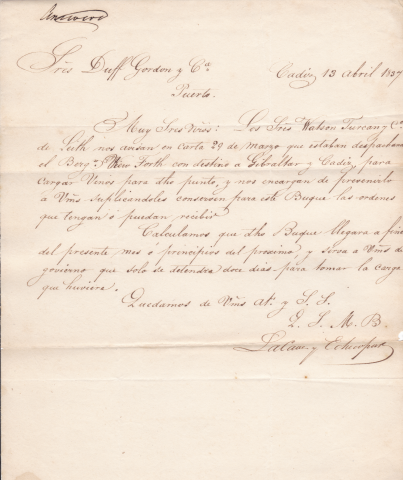 Sres Duff Gordon y Ca.
Cadiz 13 Abril 1857
Puerto.
Muy Sres nros: Los Sres Watson Turcan y Ca.
de Leith nos avisan en carta 29 de marzo que estaban despachando
el Bergn. Forth con destino a Gibraltar y Cadiz, para
cargar Vinos para dho punto, y nos encargan de prevenirlo
a Vms suplicandoles conserven para este Buque las ordenes
que tengan ó puedan recibir
Calculamos que dho Buque llegara a fines
del presente mes ó principios del proximo, y sirva a Vms de
govierno que solo se detendra doce dias para tomar la carga
que huviere.
Quedamos de Vms At. y S. S.
Q. S. M. B.
Lacave y Echecopar